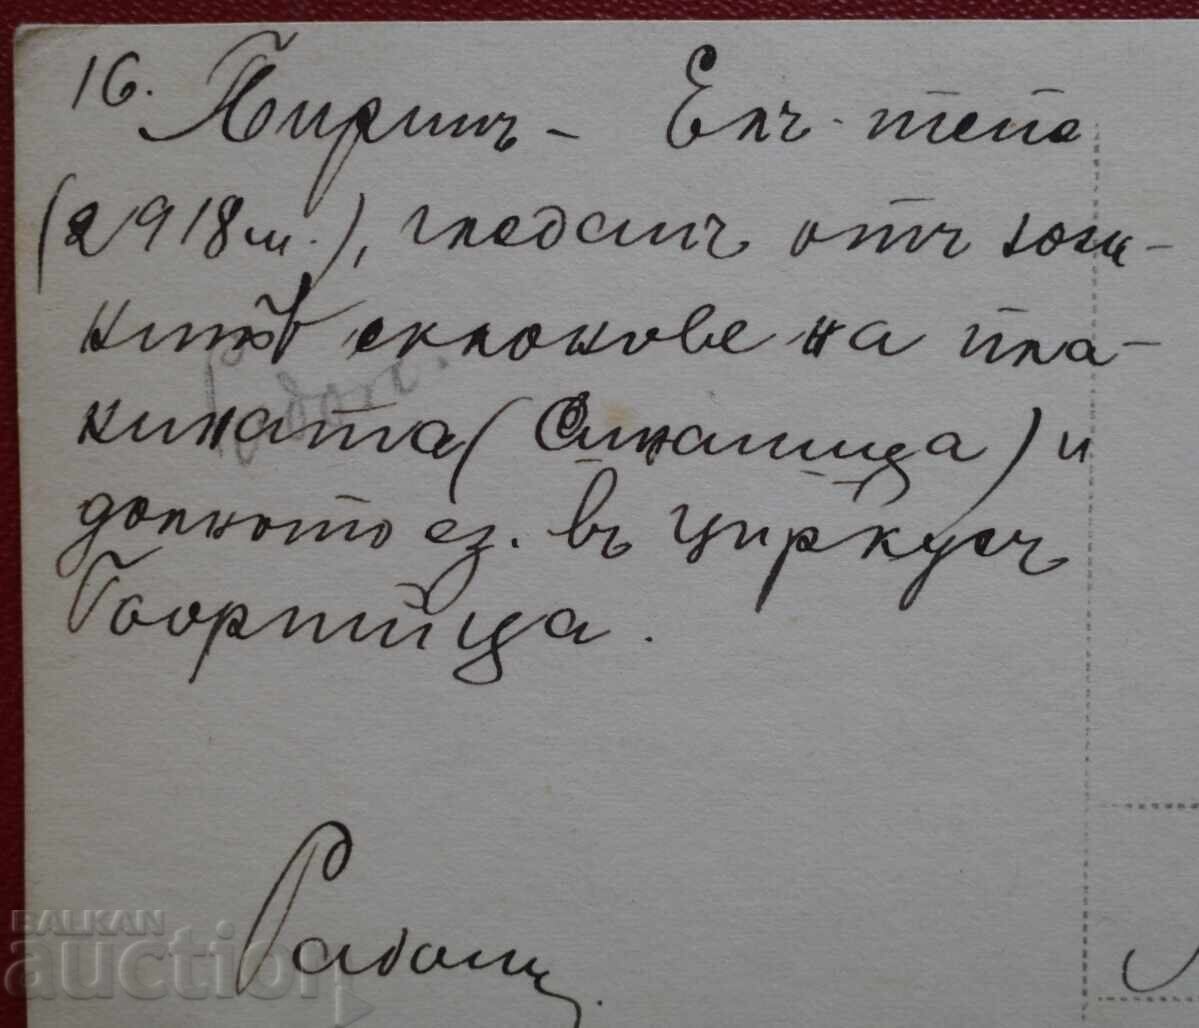 16. Пиринъ – Елъ-тепе
(2918 м.), гледанъ отъ юж-
нитѣ склонове на пла-
нината (Синаница) и
долното ез. въ циркусъ
Георгийца.
BALKAN
auction